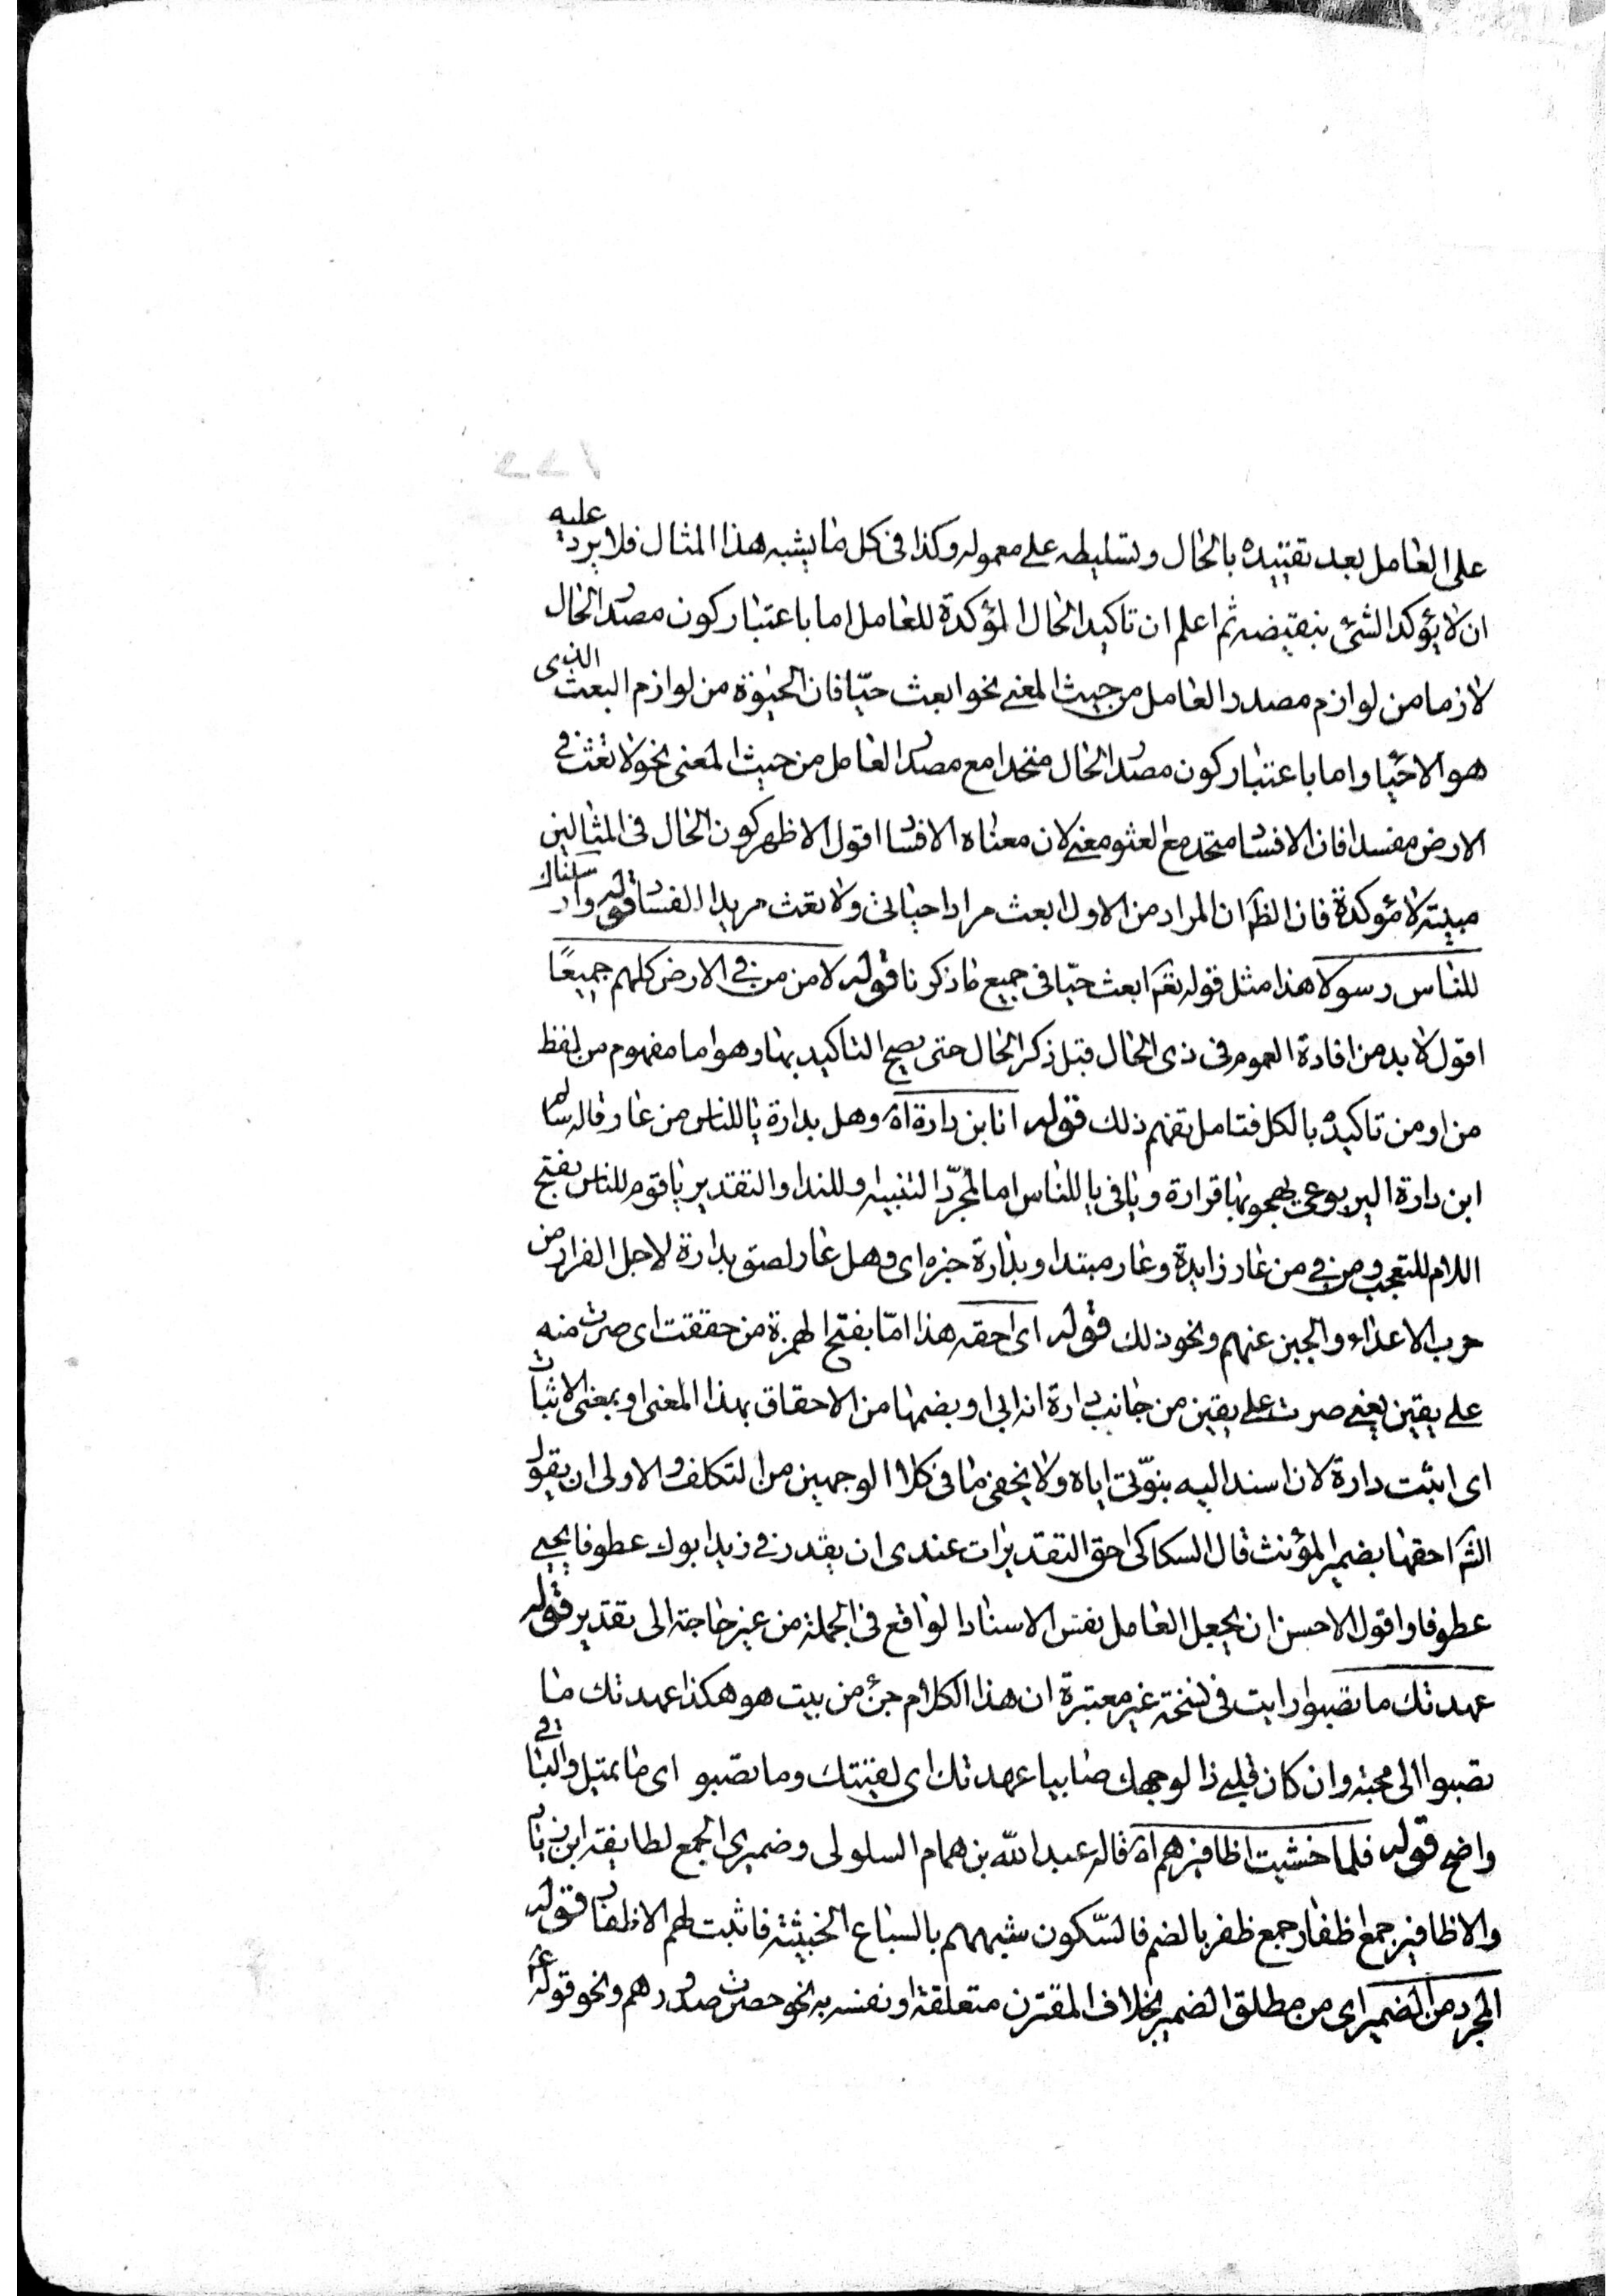 على العامل بعد تقييده بالحال وتسليطه على معموله وكذا فى كل ما يشبه هذا المثال فلا يرد عليه
ان لا يؤكد الشئ بنقيضه ثم اعلم ان تاكيد الحال المؤكدة للعامل اما باعتبار كون مصدر الحال
لازما من لوازم مصدر العامل من حيث المعنى نحو ابعث حيّا فان الحيوة من لوازم البعث الذى
هو الاحيا واما باعتبار كون مصدر الحال متحدا مع مصدر العامل من حيث المعنى نحو لا تعث فى
الارض مفسدا فان الافساد متحد مع العثو معنى لان معناه الافساد اقول الاظهر كون الحال فى المثالين
مبينة لا مؤكدة فان الظ ان المراد من الاول ابعث مرادا حياتى ولا تعث مريدا الفساد قوله وارسلناك
للناس رسولا هذا مثل قوله تعه ابعث حيّا فى جميع ما ذكرنا قوله لامن من فى الارض كلهم جميعًا
اقول لا بد من افادة العموم فى ذى الحال قبل ذكر الحال حتى يصح التاكيد بها وهو اما مفهوم من لفظ
من او من تاكيده بالكل فتامل تفهم ذلك قوله انا ابن دارة اه وهل بدارة يا للناس من عار قاله سالم
ابن دارة اليربوعى يهجو بها قرارة ويا فى يا للناس اما لمجرّد التنبيه وللندا والتقدير يا قوم للناس بفتح
اللام للتعجب ومن فى من عار زايدة وعار مبتدا وبدارة خبره اى وهل عار لصق بدارة لاجل الفرار من
حرب الاعداء والجبن عنهم ونحو ذلك قوله اى احقه هذا امّا بفتح الهمزة من حققت اى صرت منه
على يقين يعنى صرت على يقين من جانب دارة انه ابى او بضمها من الاحقاق بهذا المعنى او بمعنى الاثبات
اى اثبت دارة لان اسند اليه بنوّتى اياه ولا يخفى ما فى كلا الوجهين من التكلف والاولى ان يقول
الشه احقها بضمير المؤنث قال السكاكى احق التقديرات عندى ان يقدر فى زيد ابوك عطوفا يحيى
عطوفا واقول الاحسن ان يجعل العامل نفس الاسناد الواقع فى الجملة من غير حاجة الى تقدير قوله
عهدتك ما تصبو رايت فى نسخة غير معتبرة ان هذا الكلام جزء من بيت هو هكذا عهدتك ما
تصبوا الى محبة وان كان قلبى ذا لوجهك صابيا عهدتك اى لقيتك وما تصبو اى ما تميل والباقى
واضح قوله فلما خشيت اظافيرهم اه قاله عبد الله بن همام السلولى وضميرى الجمع لطايفة ابن زياد
والاظافير جمع اظفار جمع ظفر بالضم فالسّكون شبههم بالسباع الخبيثة فاثبت لهم الاظفار قوله
المجرد من الضمير اى من مطلق الضمير بخلاف المقترن متعلقة او نفسه به نحو حصرت صدورهم ونحو قوله